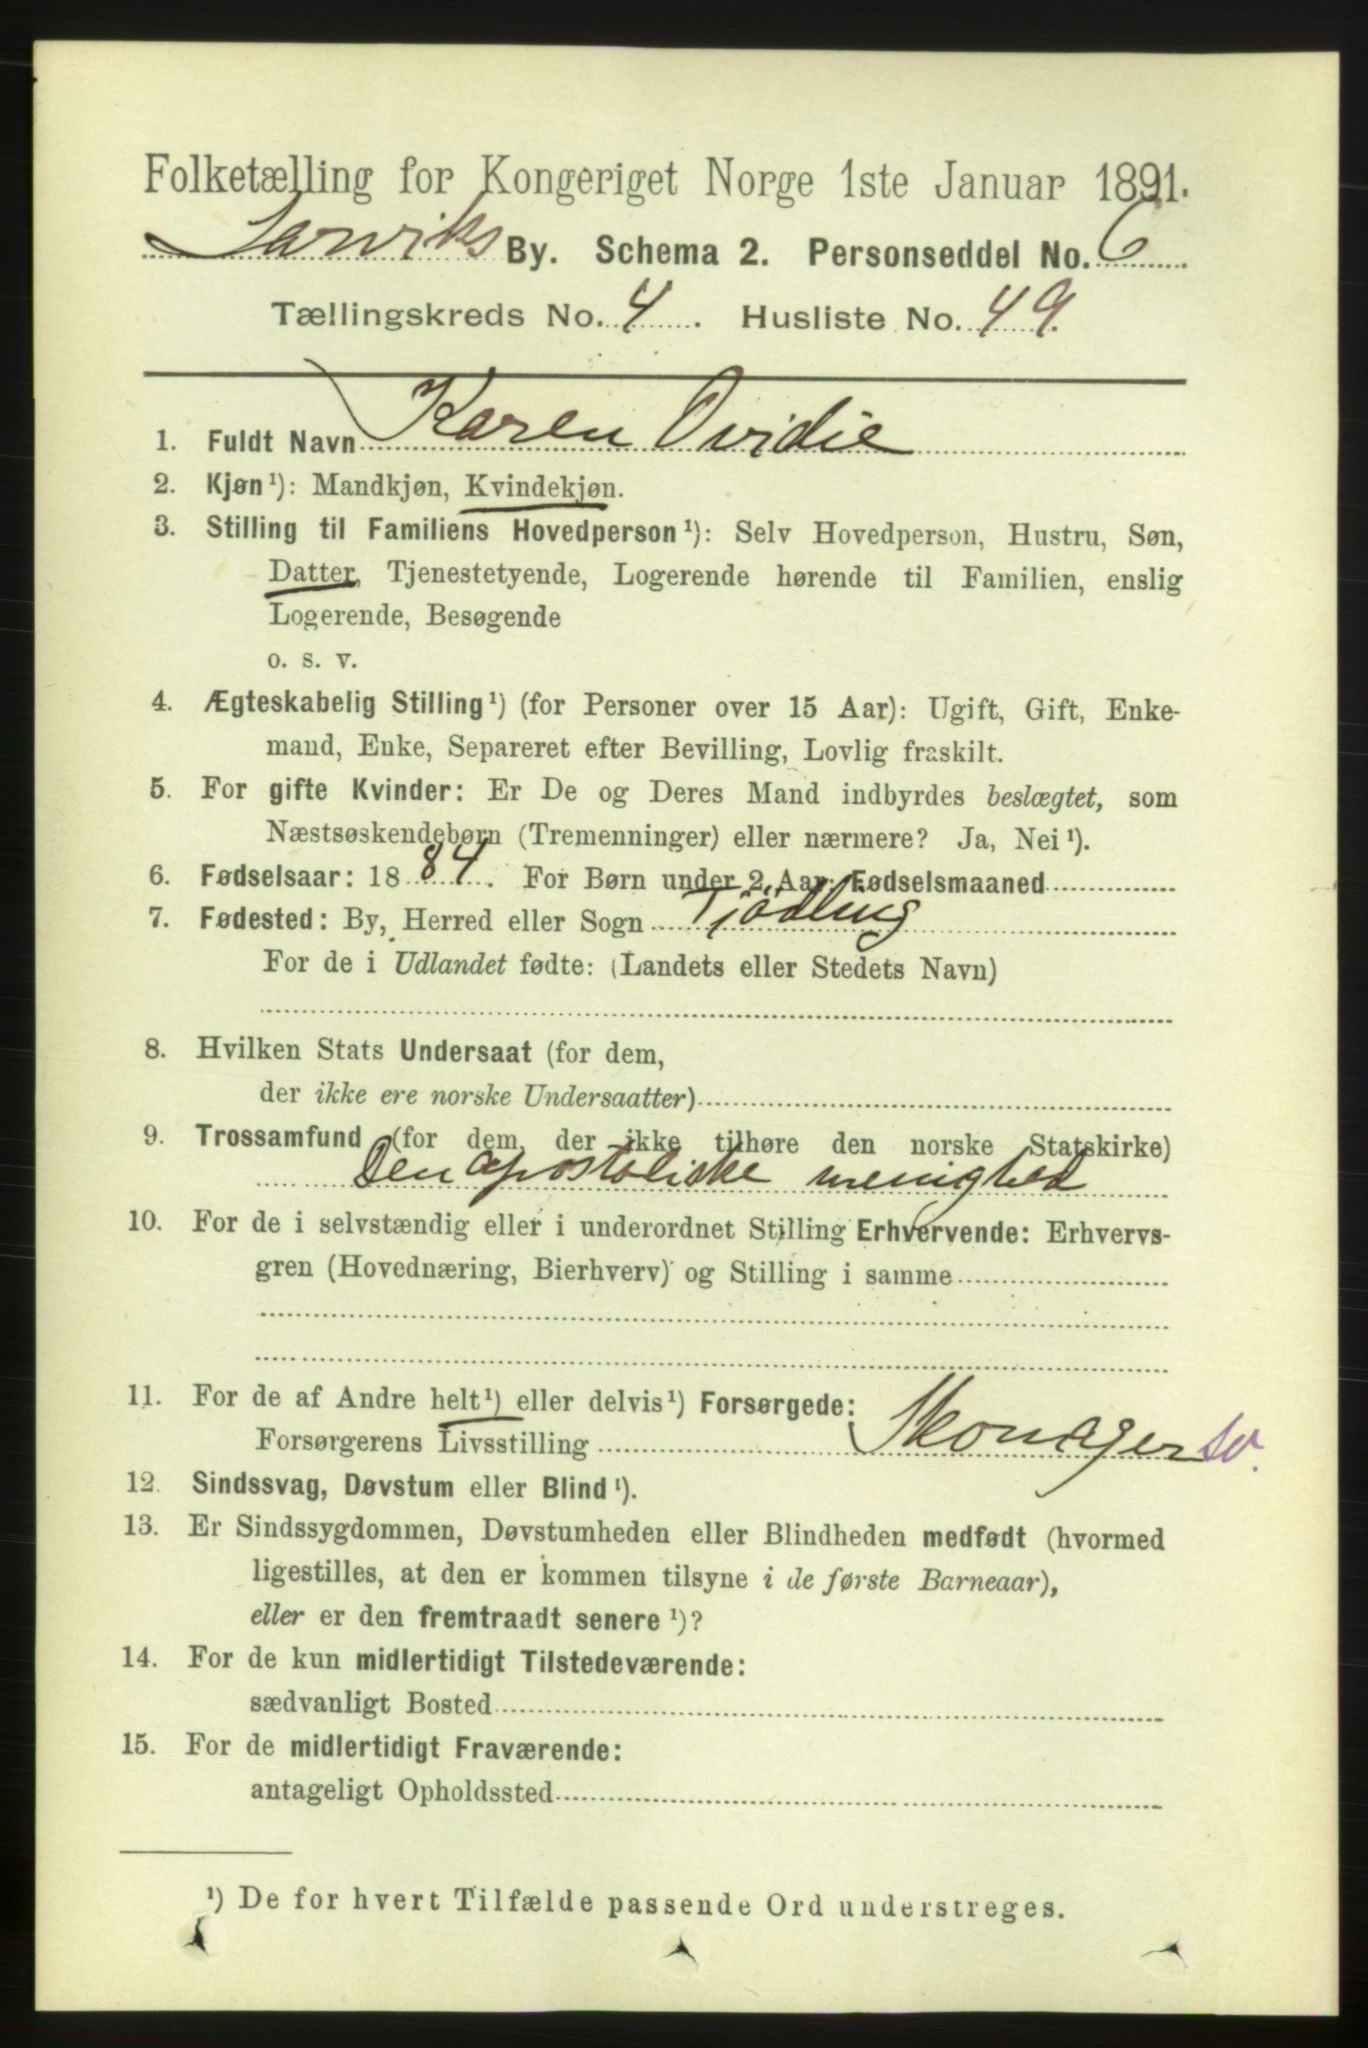 Folketælling for Kongeriget Norge 1ste Januar 1891.
Larviks By. Schema 2. Personseddel No. 6
Tællingskreds No. 4. Husliste No. 49.
1. Fuldt Navn Karen Ovidie
2. Kjøn¹): Mandkjøn, Kvindekjøn.
3. Stilling til Familiens Hovedperson¹): Selv Hovedperson, Hustru, Søn,
Datter, Tjenestetyende, Logerende hørende til Familien, enslig
Logerende, Besøgende
o. s. v.
4. Ægteskabelig Stilling¹) (for Personer over 15 Aar): Ugift, Gift, Enke-
mand, Enke, Separeret efter Bevilling, Lovlig fraskilt.
5. For gifte Kvinder: Er De og Deres Mand indbyrdes beslægtet, som
Næstsøskendebørn (Tremenninger) eller nærmere? Ja, Nei¹).
6. Fødselsaar: 1884. For Børn under 2 Aar: Fødselsmaaned
7. Fødested: By, Herred eller Sogn Tjødling
For de i Udlandet fødte: (Landets eller Stedets Navn)
8. Hvilken Stats Undersaat (for dem,
der ikke ere norske Undersaatter)
9. Trossamfund (for dem, der ikke tilhøre den norske Statskirke)
Den apostoliske menighed
10. For de i selvstændig eller i underordnet Stilling Erhvervende: Erhvervs-
gren (Hovednæring, Bierhverv) og Stilling i samme
11. For de af Andre helt¹) eller delvis¹) Forsørgede:
Forsørgerens Livsstilling Skomager
12. Sindssvag, Døvstum eller Blind¹).
13. Er Sindssygdommen, Døvstumheden eller Blindheden medfødt (hvormed
ligestilles, at den er kommen tilsyne i de første Barneaar),
eller er den fremtraadt senere¹)?
14. For de kun midlertidigt Tilstedeværende:
sædvanligt Bosted
15. For de midlertidigt Fraværende:
antageligt Opholdssted
¹) De for hvert Tilfælde passende Ord understreges.